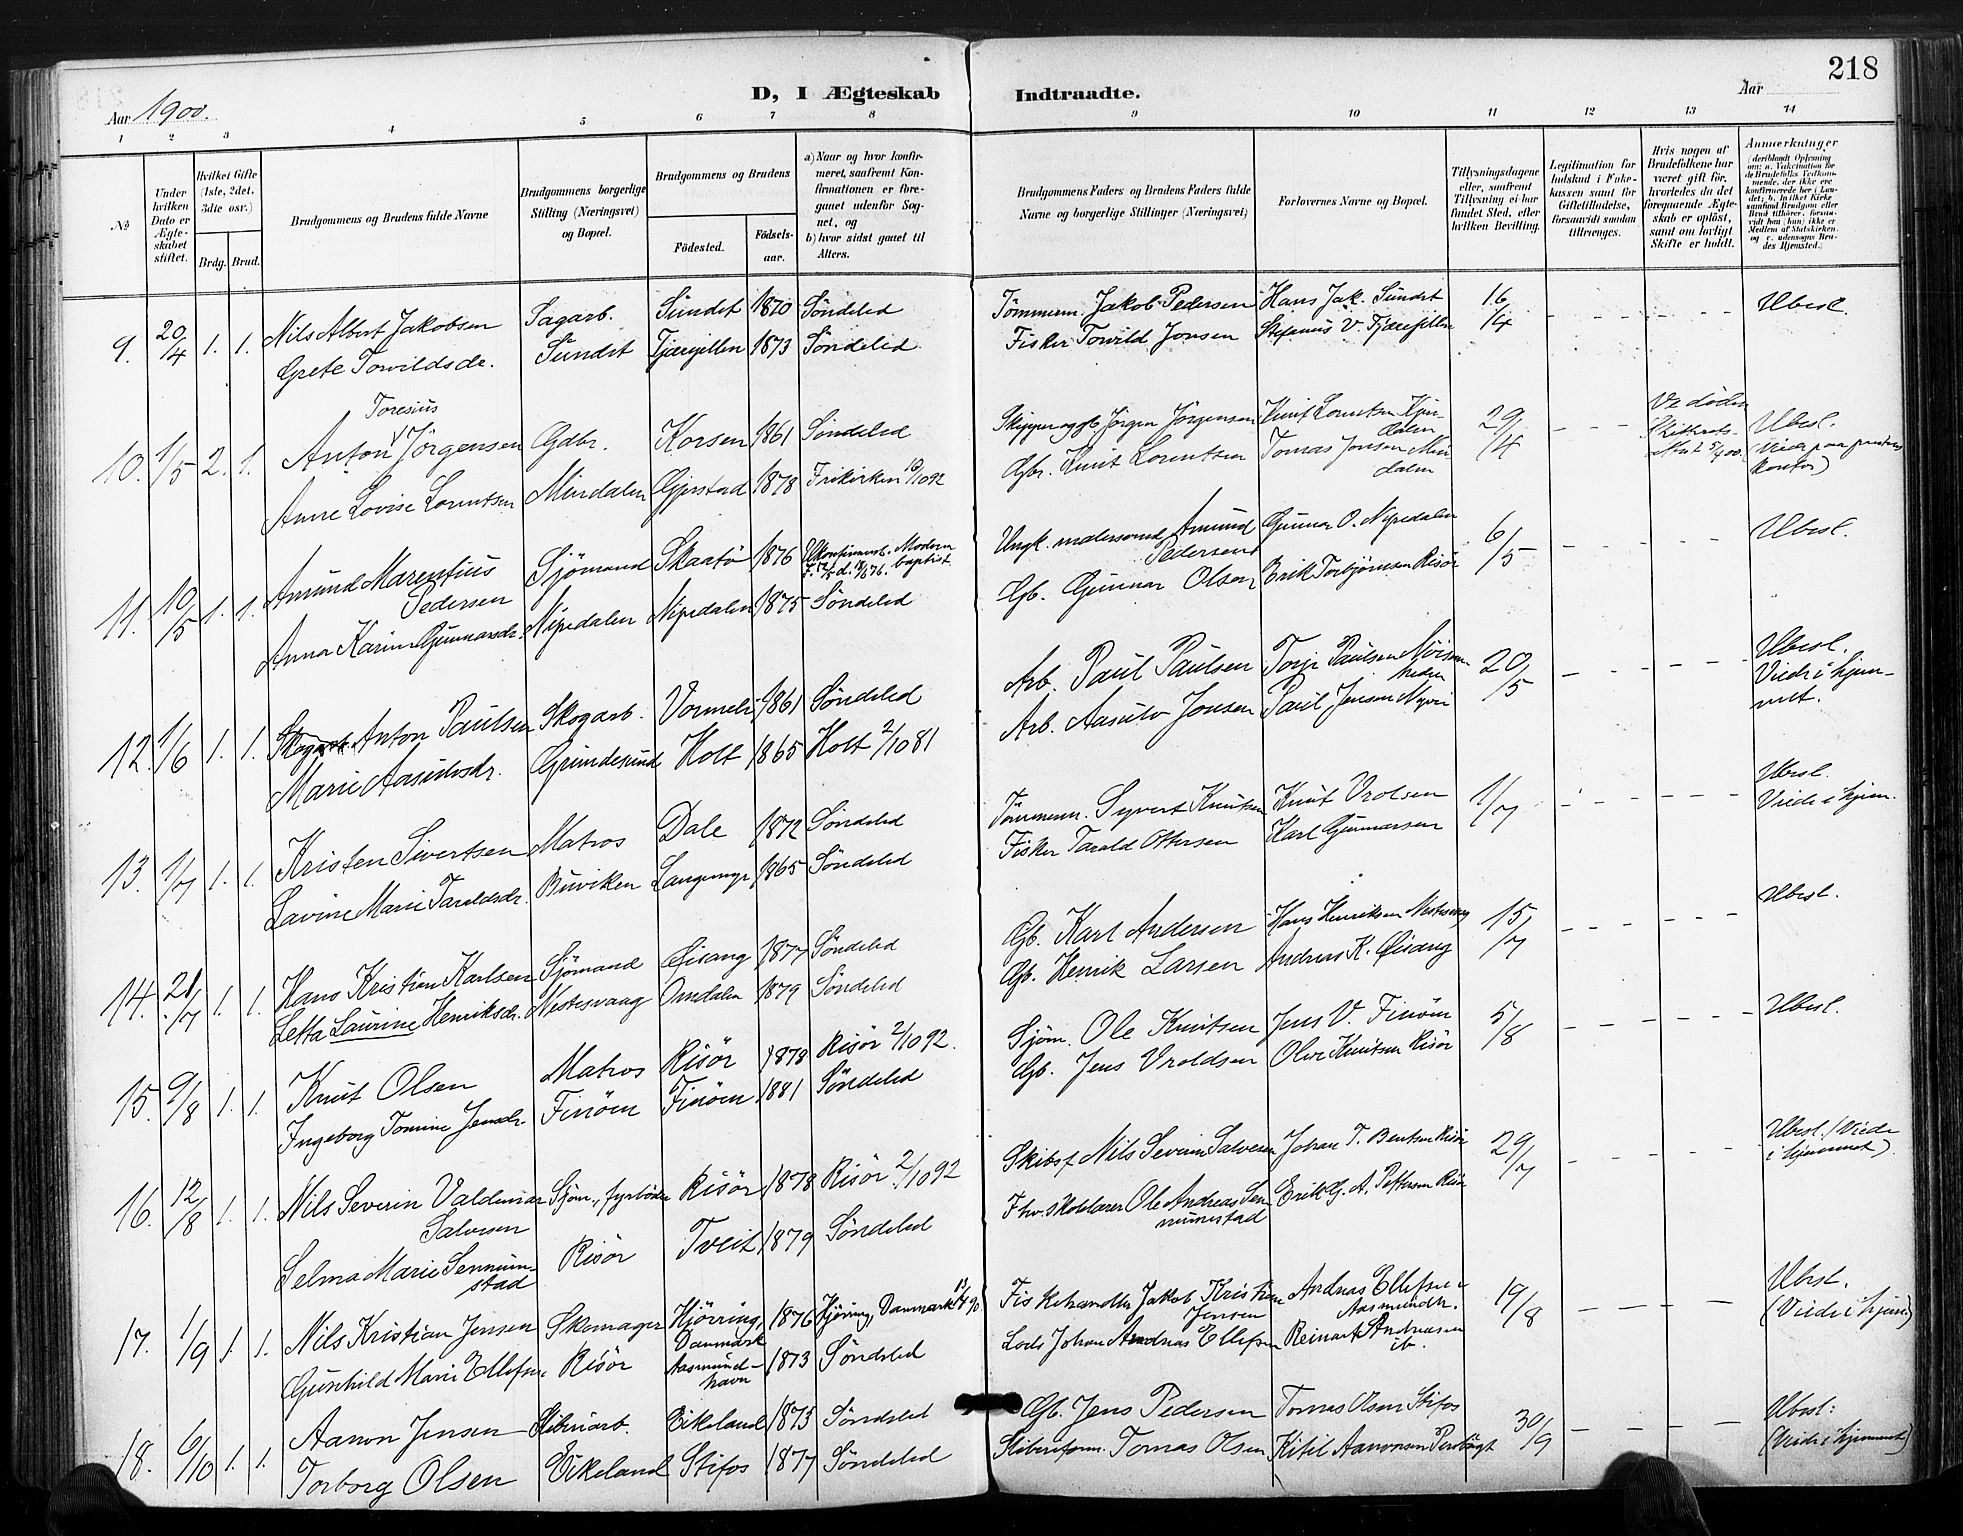 218
D, I Ægteskab Indtraadte.
Aar 1900. Aar
1 2 3 4 5 6 7 8 9 10 11 12 13 14
№
Under hvilken Dato er Ægteskabet stiftet.
Hvilket Gifte (1ste, 2det, 3die osv.)
Brdg. Brud.
Brudgommens og Brudens fulde Navne
Brudgommens borgerlige Stilling (Næringsvei) og Bopæl.
Brudgommens og Brudens
Fødested. Fødselsaar.
a) Naar og hvor konfirmeret, saafremt Konfirmationen er foregaaet udenfor Sognet, og
b) hvor sidst gaaet til Alters.
Brudgommens Faders og Brudens Faders fulde Navne og borgerlige Stillinger (Næringsvei)
Forlovernes Navne og Bopæl.
Tillysningsdagene eller, saafremt Tillysning ei har fundet Sted, efter hvilken Bevilling.
Legitimation for Indskud i Enkekassen samt for Giftetilladelse, forsaavidt saadan tiltrænges.
Hvis nogen af Brudefolkene har været gift før, hvorledes da det foregaaende Ægteskab er opløst, samt om lovligt Skifte er holdt.
Anmærkninger
9. 20/4 1. 1. Nils Albert Jakobsen Sagarb. Sundet 1870 Søndeled Tømmerm. Jakob Pedersen Hans Jak. Sundet 16/4 Ubesl.
Grete Torvildsdr. Sundet Tjærefjellen 1873 Søndeled Fisker Torvild Jonsen Stefanus V. Tjærefjellen
Toresius
10. 1/5 2. 1. Anton Jörgensen Gdbr. Korsen 1861 Søndeled Skipper og gb. Jørgen Jørgensen Knut Lorentsen Mindalen 29/4 Ved døden Ubesl.
Anne Lovise Lorentsen Mindalen Gjerstad 1878 Frikirken 10/10 92 Gbr. Knut Lorentsen Tomas Jonsen Mindalen
11. 10/5 1. 1. Amund Marentius Pedersen Sjömand Skaatö 1876 Ungk. Amund Pedersen Gunnar O. Nipedalen 6/5 Ubesl.
Anna Karine Gunnarsdr. Nipedalen Nipedalen 1875 Söndeled Gb. Gunnar Olsen Erik Torbjörnsen Risör
12. 1/6 1. 1. Anton Paulsen Skogarb. Vormeli 1861 Søndeled Arb. Paul Paulsen Torje Paulsen 20/5 Ubesl. Viede i hjemmet.
Marie Aasulvsdr. Grundesund Holt 1865 Holt 2/10 81 Arb. Aasulv Jonsen Paul Jensen
13. 1/7 1. 1. Kristen Sivertsen Matros Dale 1872 Søndeled Tømmerm. Syvert Knutsen Knut Vrolsen 1/7 Ubesl. Viede i hjem.
Lavine Marie Taraldsdr. Buviken Langemyr 1865 Søndeled Fisker Tarald Ottersen Karl Gunnarsen
14. 21/7 1. 1. Hans Kristian Karlsen Sjömand Øisang 1877 Søndeled Gb. Karl Andersen Hans Henriksen Nestesvaag 15/7 Ubesl.
Letta Laurine Henriksdr. Nestesvaag Omdalen 1879 Søndeled Gb. Henrik Larsen Andreas K. Øisang
15. 9/8 1. 1. Knut Olsen Matros Risör 1878 Risör 2/10 92. Sjöm. Ole Knutsen Jens V. Finöen 5/8 Ubesl.
Ingeborg Tomine Jensdr. Finöen Finöen 1881 Søndeled Gb. Jens Vroldsen Olve Knutsen Risör
16. 12/8 1. 1. Nils Severin Valdemar Salvesen Sjöm., fyrböder Risör 1878 Risör 2/10 92 Skibsf. Nils Severin Salvesen Johan T. Bentsen Risör 29/7 Ubesl. (Viede i hjemmet)
Selma Marie Sennumstad Risör Tveit 1879 Søndeled Fhv. skolelærer Ole Andreas Sennumstad Erik G. A. Pettersen Risör
17. 1/9 1. 1. Nils Kristian Jensen Skomager Hjörring, Danmark 1876 Hjöring, Danmark 13/4 90 Fiskehandler Jakob Kristian Jensen Andreas Ellefsen Aasmundh. 19/8 Ubesl. (Viede i hjem)
Gunhild Marie Ellefsen Risör Aasmundhavn 1873 Søndeled Lods Johan Andreas Ellefsen Reinart Andreasen ib.
18. 6/10 1. 1. Aanon Jensen Skibstömarb. Eikeland 1875 Søndeled Gb. Jens Pedersen Tomas Olsen Stifos 30/9 Ubesl. (Viede i hjemmet)
Torborg Olsen Eikeland Stifos 1877 Søndeled Tomas Olsen Kitil Aanonsen